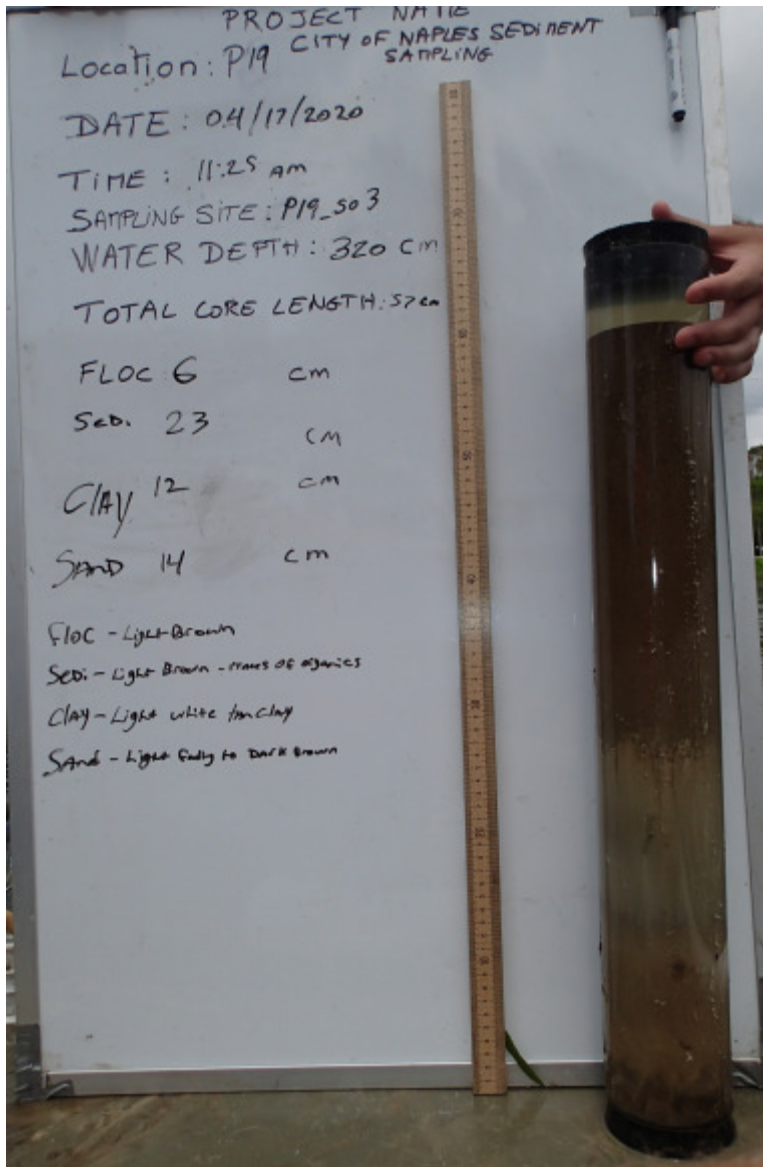 PROJECT NAME
CITY OF NAPLES SEDIMENT
SAMPLING
Location: P19
DATE: 04/17/2020
TIME: 11:25 AM
SAMPLING SITE: P19_S03
WATER DEPTH: 320 cm
TOTAL CORE LENGTH: 57cm
FLOC 6 cm
Sedi. 23 cm
Clay 12 cm
SAND 14 cm
Floc - Light Brown
Sedi - Light Brown - traces of organics
Clay - Light white tan Clay
Sand - Light to Dark Brown
70
60
50
40
30
20
10